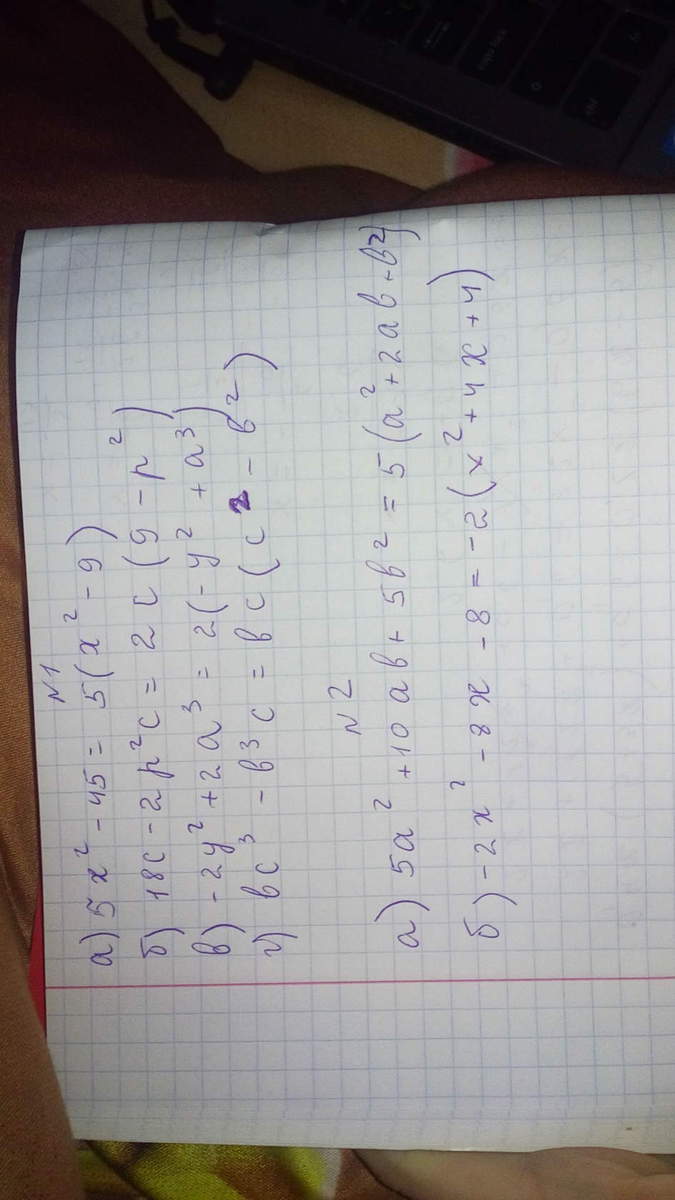 N1
а) 5x² - 45 = 5(x² - 9)
б) 18c - 2p²c = 2c(9 - p²)
в) -2y² + 2a³ = 2(-y² + a³)
г) bc³ - b³c = bc(c² - b²)
N2
а) 5a² + 10ab + 5b² = 5(a² + 2ab + b²)
б) -2x² - 8x - 8 = -2(x² + 4x + 4)